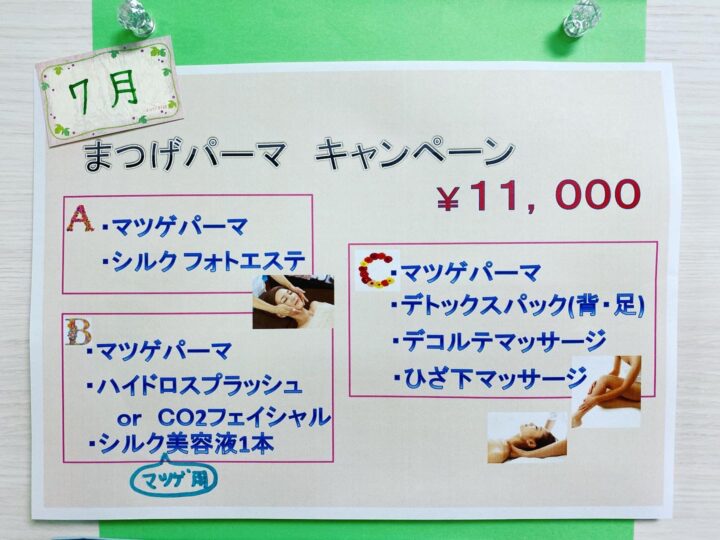 7月
まつげパーマ キャンペーン
￥11,000
A
・マツゲパーマ
・シルクフォトエステ
B
・マツゲパーマ
・ハイドロスプラッシュ
or CO2フェイシャル
・シルク美容液1本
マツゲ用
C
・マツゲパーマ
・デトックスパック(背・足)
・デコルテマッサージ
・ひざ下マッサージ